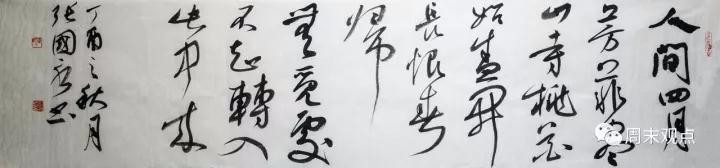 人間四月
芳菲盡
山寺桃花
始盛開
長恨春
歸
無覓處
不知轉入
此中來
丁酉之秋月
張國書
周末观点